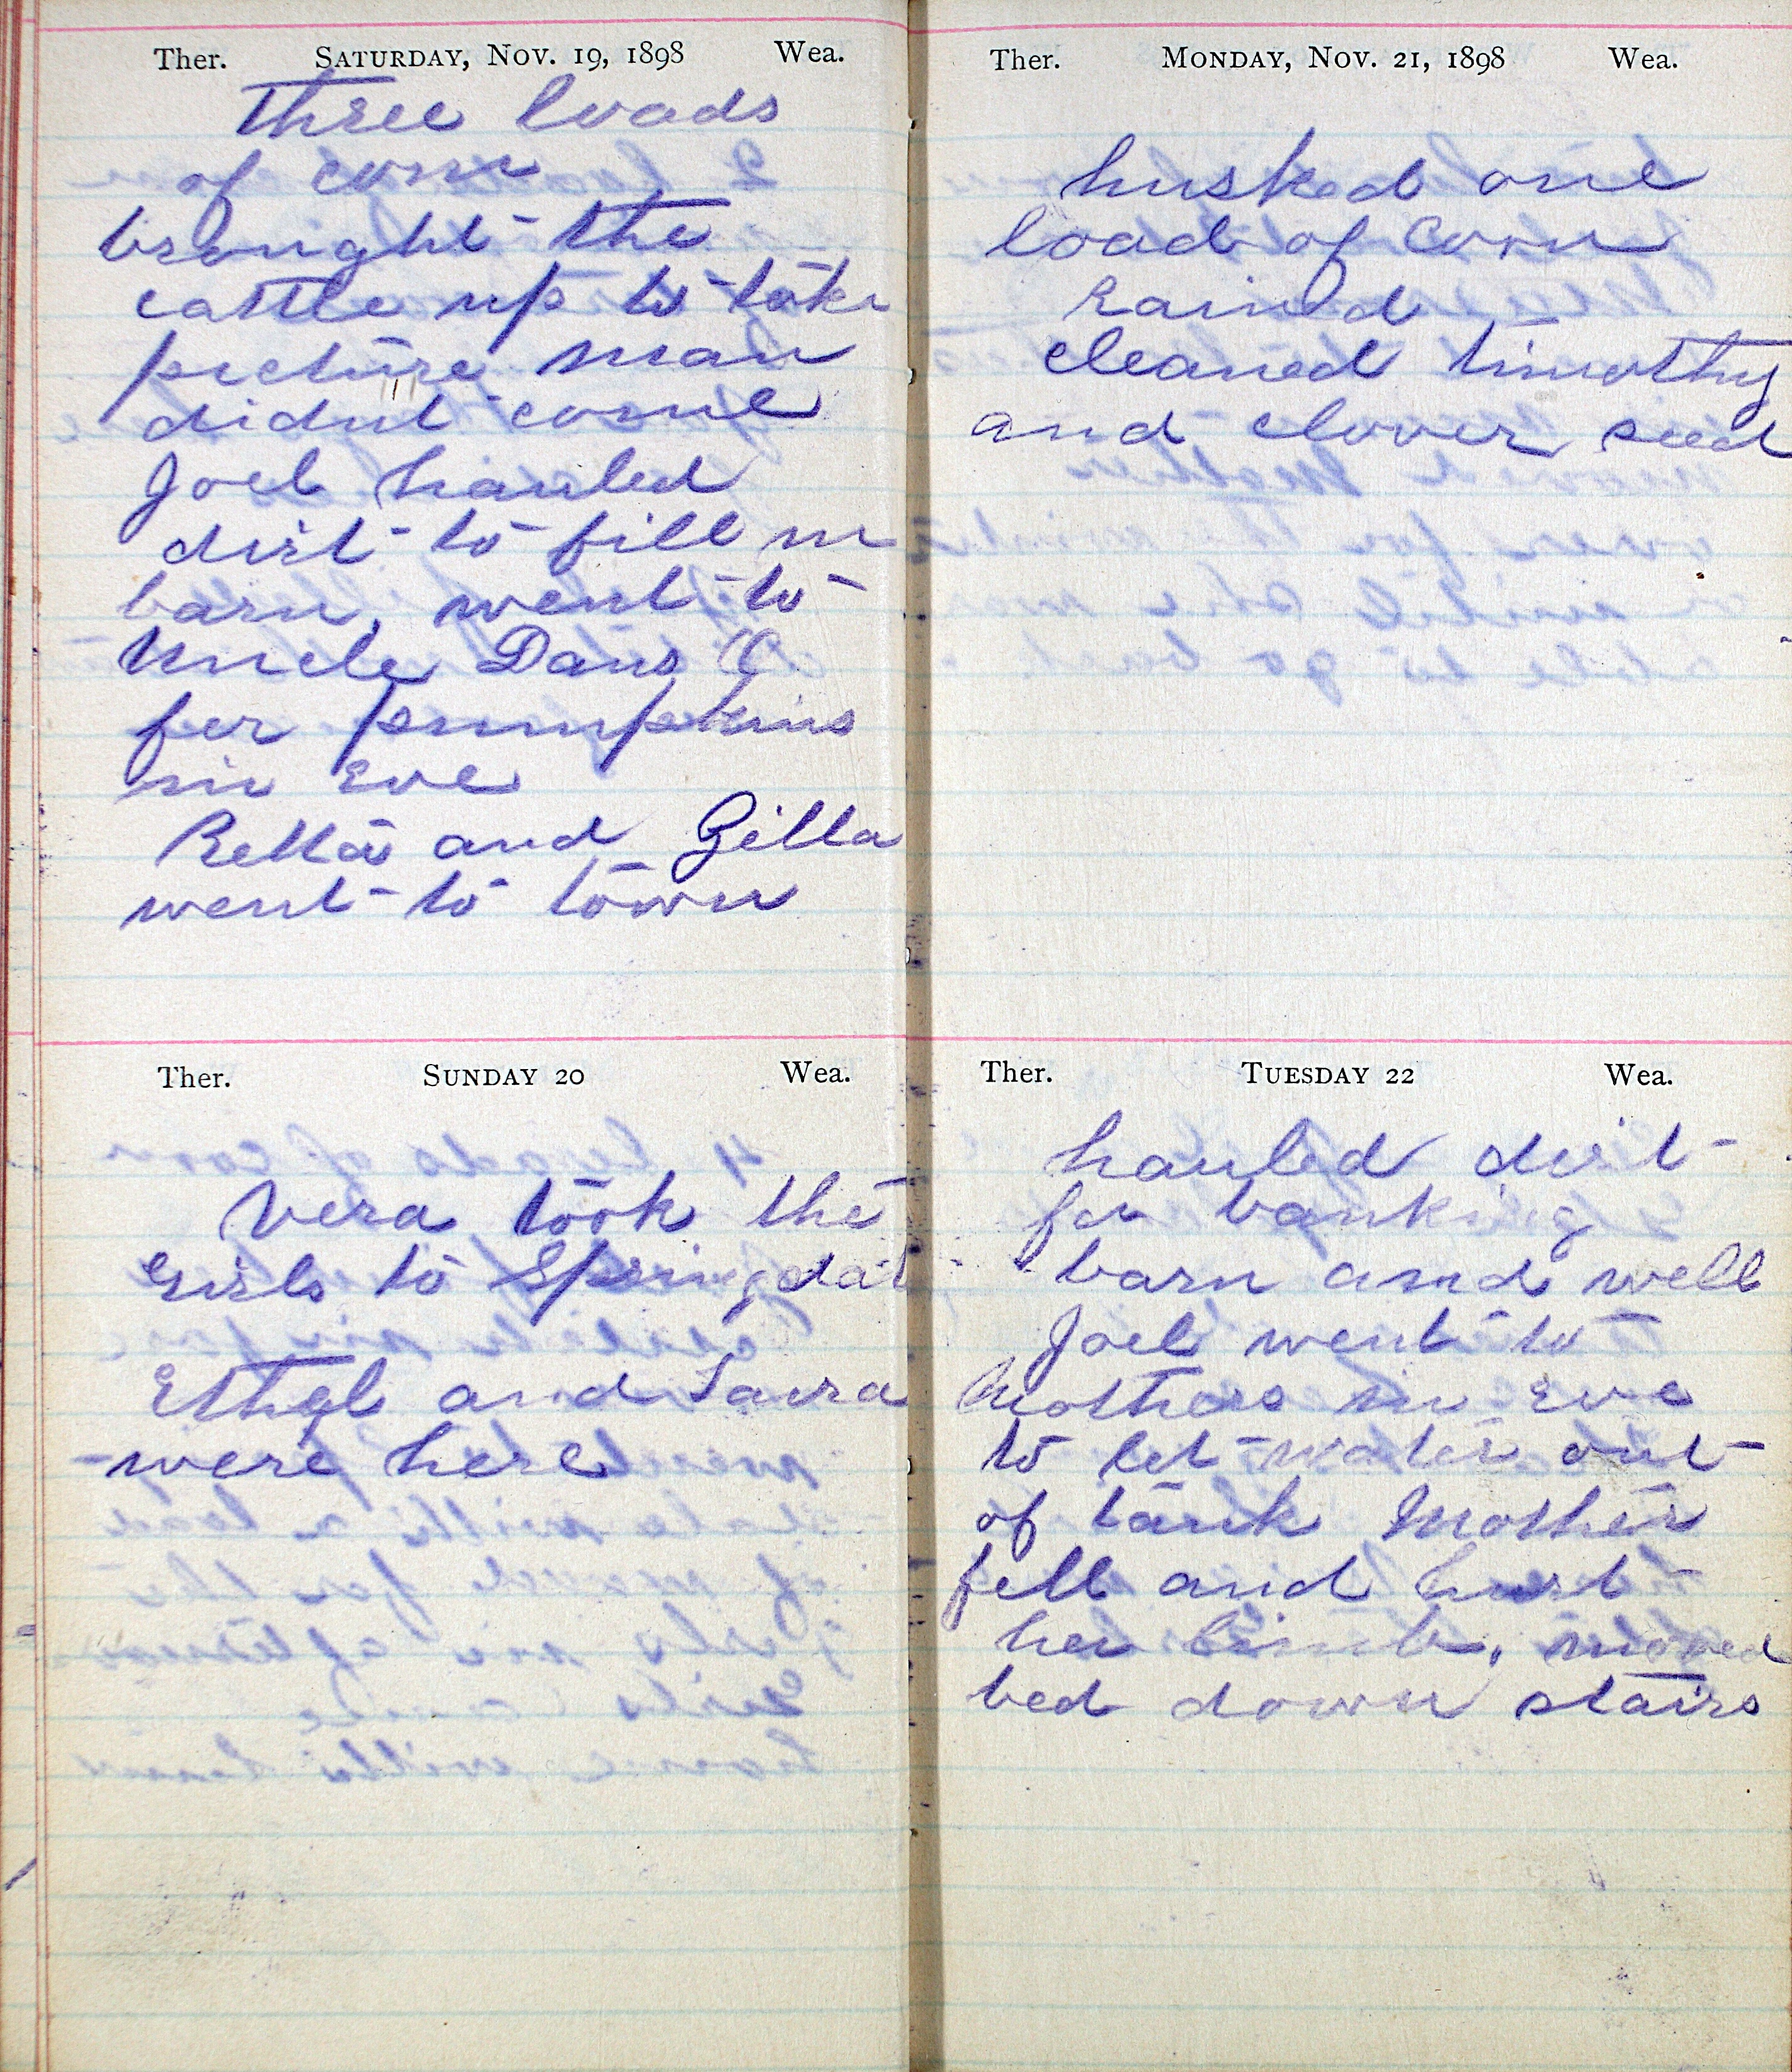 Ther. SATURDAY, NOV. 19, 1898 Wea.
Three loads
of corn
brought the
cattle up to take
picture man
didnt come
Joel hauled
dirt to fill in
barn, went to
Uncle Dans O
for pumpkins
in Eve
Retta and Zilla
went to town
Ther. SUNDAY 20 Wea.
Vera took the
Girls to Springdal
Ethel and Laura
were here
Ther. MONDAY, NOV. 21, 1898 Wea.
husked one
load of Corn
Rained
cleaned timothy
and clover seed
Ther. TUESDAY 22 Wea.
hauled dirt
for banking
barn amd well
Joel went to
Mothers in Eve
to let water out
of tank Mother
fell and hurt
her limb, moved
bed down stairs